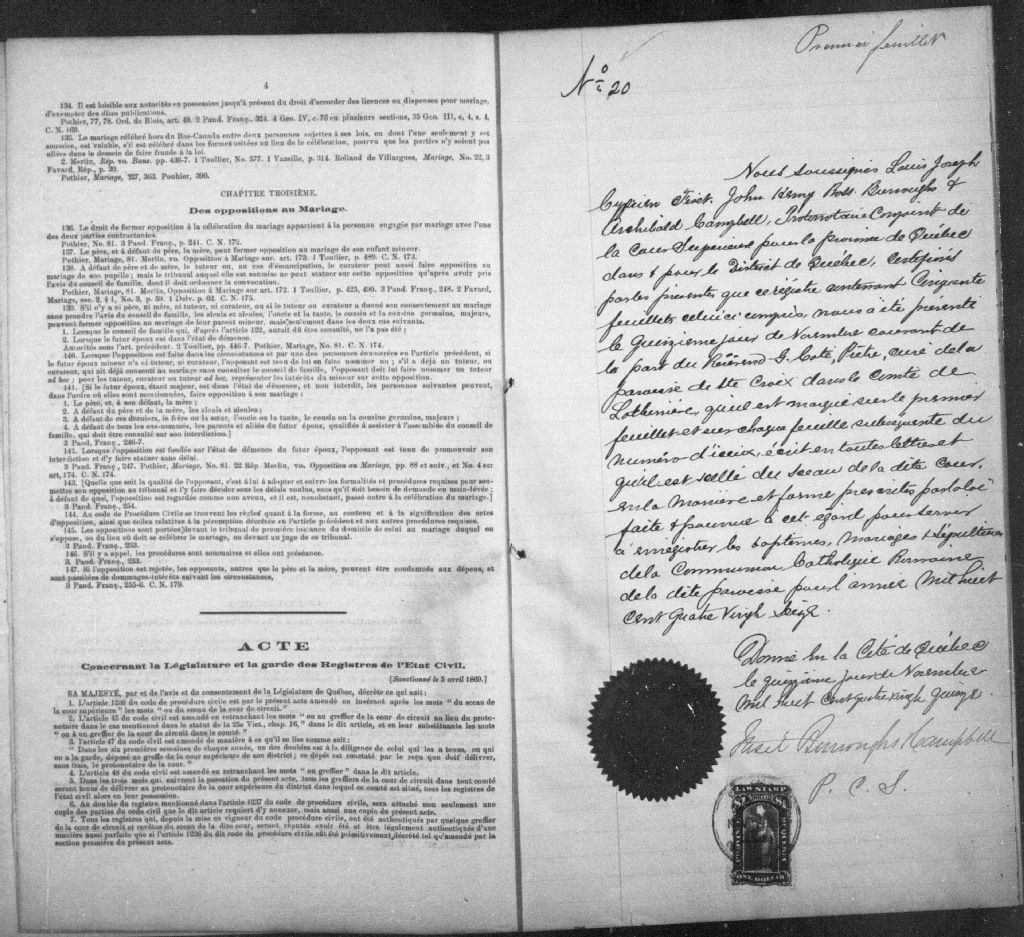 4
134. Il est loisible aux autorités en possession jusqu'à présent du droit d'accorder des licences ou dispenses pour mariage,
d'exempter des dites publications.
Pothier, 77, 78. Ord. de Blois, art. 40. 2 Pand. Franç., 324. 4 Geo. IV, c. 76 en plusieurs sections, 35 Geo. III, c, 4, s. 4,
C. N. 169.
135. Le mariage célébré hors du Bas-Canada entre deux personnes sujettes à ses lois, ou dont l'une seulement y est
soumise, est valable, s'il est célébré dans les formes usitées au lieu de la célébration, pourvu que les parties n'y soient pas
allées dans le dessein de faire fraude à la loi.
2. Merlin, Rép. vo. Bans. pp. 436-7. 1 Toullier, No. 577. 1 Vazeille, p. 314. Rolland de Villargues, Mariage, No. 22, 3
Favard, Rép., p. 39.
Pothier, Mariage, 327, 363. Pouhier, 390.
CHAPITRE TROISIÈME.
Des oppositions au Mariage.
136. Le droit de former opposition à la célébration du mariage appartient à la personne engagée par mariage avec l'une
des deux parties contractantes.
Pothier, No. 81. 3 Pand. Franç., p. 241. C. N. 172.
137. Le père, et à défaut du père, la mère, peut former opposition au mariage de son enfant mineur.
Pothier, Mariage, 81. Merlin. vo. Opposition à Mariage sur. art. 173. 1 Toullier, p. 489. C. N. 173.
138. A défaut de père et de mère, le tuteur ou, au cas d'émancipation, le curateur peut aussi faire opposition au
mariage de son pupille ; mais le tribunal auquel elle est soumise ne peut statuer sur cette opposition qu'après avoir pris
l'avis du conseil de famille, dont il doit ordonner la convocation.
Pothier, Mariage, 81. Merlin, Opposition à Mariage sur art. 172. 1 Toullier, p. 425, 490. 3 Pand. Franç., 248. 2 Favard,
Mariage, sec. 2, § 4, No. 3, p. 59. 1 Delv. p. 62. C. N. 175.
139. S'il n'y a ni père, ni mère, ni tuteur, ni curateur, ou si le tuteur ou curateur a donné son consentement au mariage
sans prendre l'avis du conseil de famille, les aïeuls et aïeules, l'oncle et la tante, le cousin et la cousine germains, majeurs,
peuvent former opposition au mariage de leur parent mineur, mais seulement dans les deux cas suivants.
1. Lorsque le conseil de famille qui, d'après l'article 122, aurait dû être consulté, ne l'a pas été ;
2. Lorsque le futur époux est dans l'état de démence.
Autorités sous l'art. précédent. 2 Toullier, pp. 446-7. Pothier, Mariage, No. 81. C. N. 174.
140. Lorsque l'opposition est faite dans les circonstances et par une des personnes énumérées en l'article précédent, si
le futur époux mineur n'a ni tuteur, ni curateur, l'opposant est tenu de lui en faire nommer un ; s'il a déjà un tuteur, ou
curateur, qui ait déjà consenti au mariage sans consulter le conseil de famille, l'opposant doit lui faire nommer un tuteur
ad hoc ; pour les tuteur, curateur ou tuteur ad hoc, représenter les intérêts du mineur sur cette opposition.
141. [Si le futur époux, étant majeur, est dans l'état de démence, et non interdit, les personnes suivantes peuvent,
dans l'ordre où elles sont mentionnées, faire opposition à son mariage :
1. Le père, et, à son défaut, la mère ;
2. A défaut du père et de la mère, les aïeuls et aïeules ;
3. A défaut de ces derniers, le frère ou la sœur, l'oncle ou la tante, le cousin ou la cousine germains, majeurs ;
4. A défaut de tous les sus-nommés, les parents et alliés du futur époux, qualifiés à assister à l'assemblée du conseil de
famille, qui doit être consulté sur son interdiction.]
3 Pand. Franç., 246-7.
142. Lorsque l'opposition est fondée sur l'état de démence du futur époux, l'opposant est tenu de promouvoir son
interdiction et d'y faire statuer sans délai.
3 Pand. Franç., 247. Pothier, Mariage, No. 81. 22 Rép. Merlin, vo. Opposition au Mariage, pp. 88 et suiv., et No. 4 sur
art. 174. C. N. 174.
143. [Quelle que soit la qualité de l'opposant, c'est à lui à adopter et suivre les formalités et procédures requises pour sou-
mettre son opposition au tribunal et l'y faire décider sous les délais voulus, sans qu'il soit besoin de demande en main-levée ;
à défaut de quoi, l'opposition est regardée comme non avenu, et il est, nonobstant, passé outre à la célébration du mariage.]
3 Pand. Franç., 254.
144. Au code de Procédure Civile se trouvent les règles quant à la forme, au contenu et à la signification des actes
d'opposition, ainsi que celles relatives à la péremption décrétée en l'article précédent et aux autres procédures requises.
145. Les oppositions sont portées devant le tribunal de première instance du domicile de celui au mariage duquel on
s'oppose, ou du lieu où doit se célébrer le mariage, ou devant un juge de ce tribunal.
3 Pand. Franç., 253.
146. S'il y a appel, les procédures sont sommaires et elles ont préséance.
3. Pand. Franç., 253.
147. Si l'opposition est rejetée, les opposants, autres que le père et la mère, peuvent être condamnés aux dépens, et
sont passibles de dommages-intérêts suivant les circonstances,
3 Pand. Franç., 255-6. C. N. 179.
ACTE
Concernant la Législature et la garde des Registres de l'Etat Civil.
[Sanctionné le 5 avril 1869.]
SA MAJESTÉ, par et de l'avis et du consentement de la Législature de Québec, décrète ce qui suit:
1. L'article 1236 du code de procédure civile est par le présent acte amendé en insérant après les mots "du sceau de
la cour supérieure" les mots "ou du sceau de la cour de circuit."
2. L'article 45 du code civil est amendé en retranchant les mots "ou au greffier de la cour de circuit au lieu du proto-
notaire dans le cas mentionné dans le statut de la 25e Vict., chap. 16," dans le dit article, et en leur substituant les mots
"ou à un greffier de la cour de circuit dans le comté."
3. l'article 47 du code civil est amendé de manière à ce qu'il se lise comme suit:
"Dans les six premières semaines de chaque année, un des doubles est à la diligence de celui qui les a tenus, ou qui
en a la garde, déposé au greffe de la cour supérieure de son district; ce dépôt est constaté par le reçu que doit délivrer,
sans frais, le protonotaire de la cour."
4. L'article 48 du code civil est amendé en retranchant les mots "ou greffier" dans le dit article.
5. Dans les trois mois qui suivront la passation du présent acte, tous les greffiers de la cour de circuit dans tout comté
seront tenus de délivrer au protonotaire de la cour supérieure du district dans lequel ce comté est situé, tous les registres de
l'état civil alors en leur possession.
6. Au double du registre mentionné dans l'article 1237 du code de procédure civile, sera attaché non seulement une
copie des parties du code civil que le dit article requiert d'y annexer, mais aussi une copie du présent acte.
7. Tous les registres qui, depuis la mise en vigueur du code procédure civile, ont été authentiqués par quelque greffier
de la cour de circuit et revêtus du sceau de la dite cour, seront réputés avoir été et être légalement authentiqués d'une
manière aussi parfaite que si l'article 1236 du dit code de procédure civile eût été primitivement décrété tel qu'amendé par la
section première du présent acte.
Premier feuillet
No 20
Nous soussignés Louis Joseph
Cyprien Fiset, John Henry Ross Burroughs &
Archibald Campbell, Protonotaire Conjoint de
la Cour Supérieure pour la province de Québec
dans & pour le District de Québec, Certifions
par les présentes que ce registre contenant Cinquante
feuillets celui ci compris, nous a été présenté
le Quinzieme jour de Novembre courant de
la part du Révérend G. Coté, Prêtre, curé de la
paroisse de Ste Croix dans le Comté de
Lotbinière, qu'il est marqué sur le premier
feuillet et sur chaque feuille subséquente du
numéro d'iceux, écrit en toutes lettres et
qu'il est scellé du sceau de la dite Cour,
en la manière et forme prescrites par la loi
faite & pourvue à cet égard pour servir
à enregistrer les baptêmes, mariages & sépultures
de la Communion Catholique Romaine
de la dite paroisse pour l'année Mil huit
Cent Quatre Vingt Seize.
Donné En la Cité de Québec
le quinzième jour de Novembre
Mil huit Cent Quatre vingt quinze.
Fiset Burroughs & Campbell
P. C. S.
LAW STAMP
ONE DOLLAR